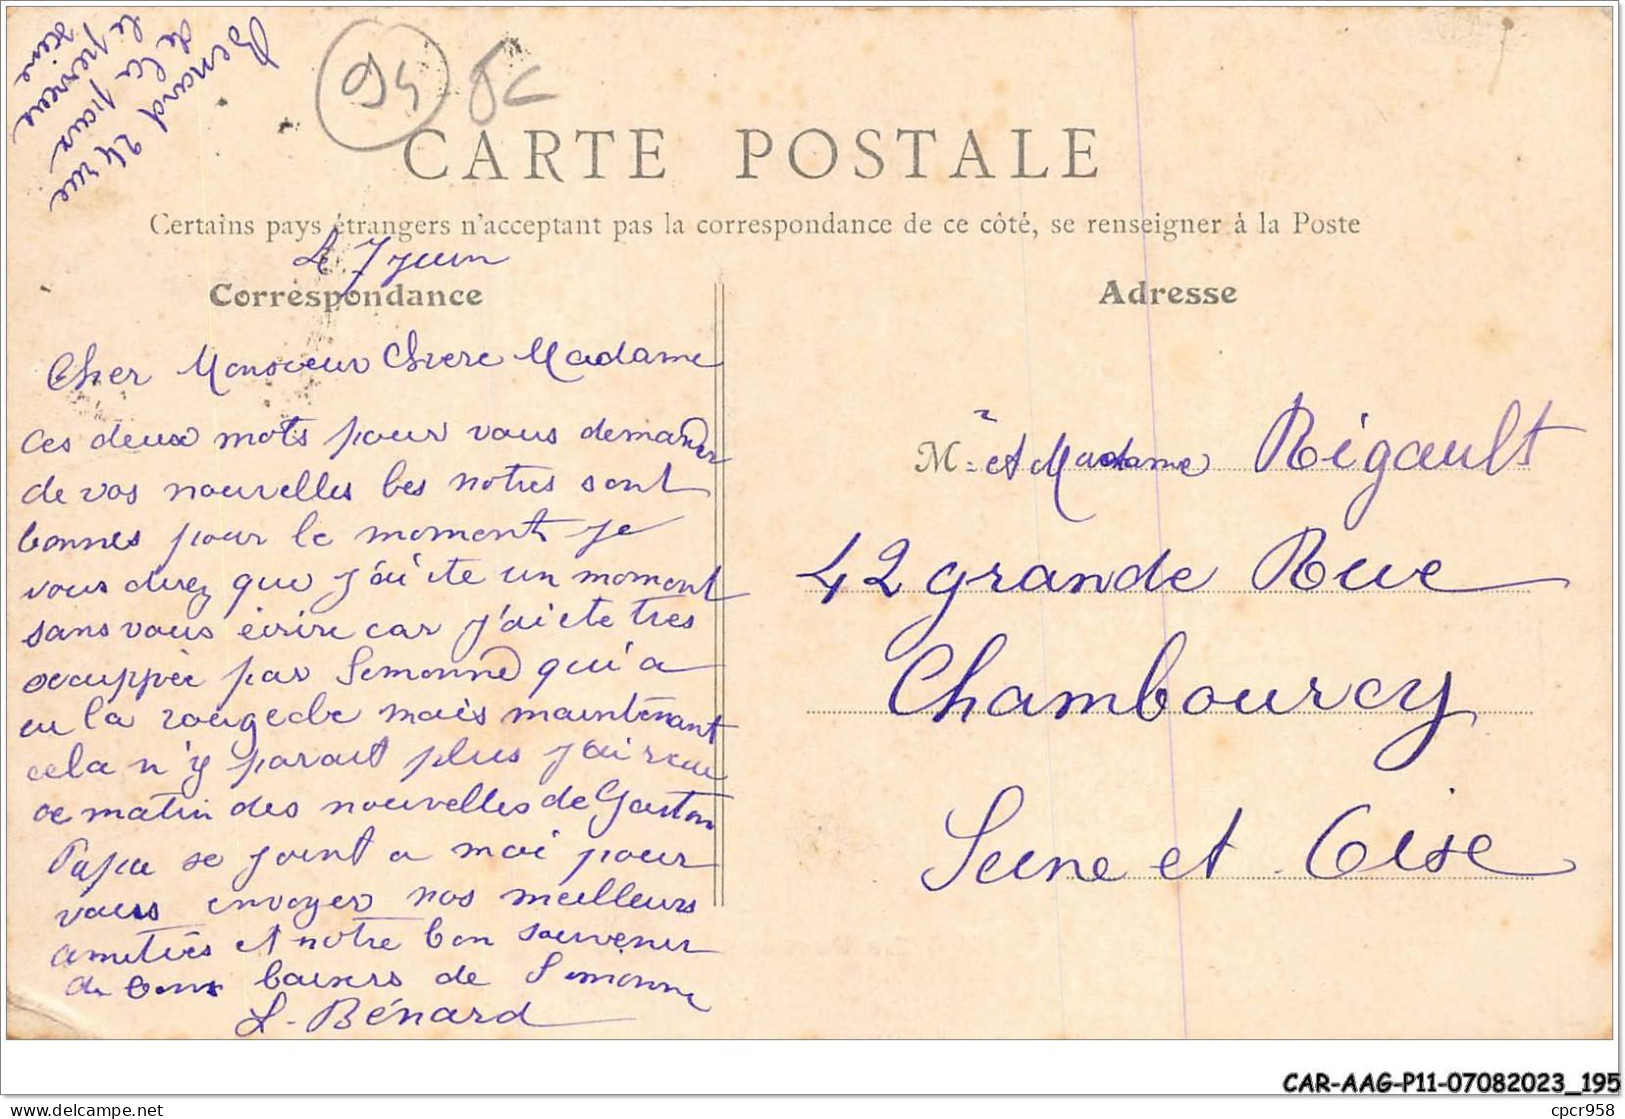 Bénard 24 rue
de la paix
le perreux
Seine
94 5c
CARTE POSTALE
Certains pays étrangers n'acceptant pas la correspondance de ce côté, se renseigner à la Poste
Le 7 juin
Correspondance
Cher Monsieur Chere Madame
ces deux mots pour vous demander
de vos nouvelles les notres sont
bonnes pour le moment je
vous direz que j'ai ete un moment
sans vous écrire car j'ai ete tres
occuppée par Simonne qui a
eu la rougeole mais maintenant
cela n'y parait plus j'ai recue
ce matin des nouvelles de Gaston
Papa se joint a moi pour
vous envoyer nos meilleurs
amitiés et notre bon souvenir
de bons baisers de Simonne
L. Bénard
Adresse
M.r et Madame Rigault
42 grande Rue
Chambourcy
Seine et Oise
CAR-AAG-P11-07082023_195
delcampe.net
cpcr958